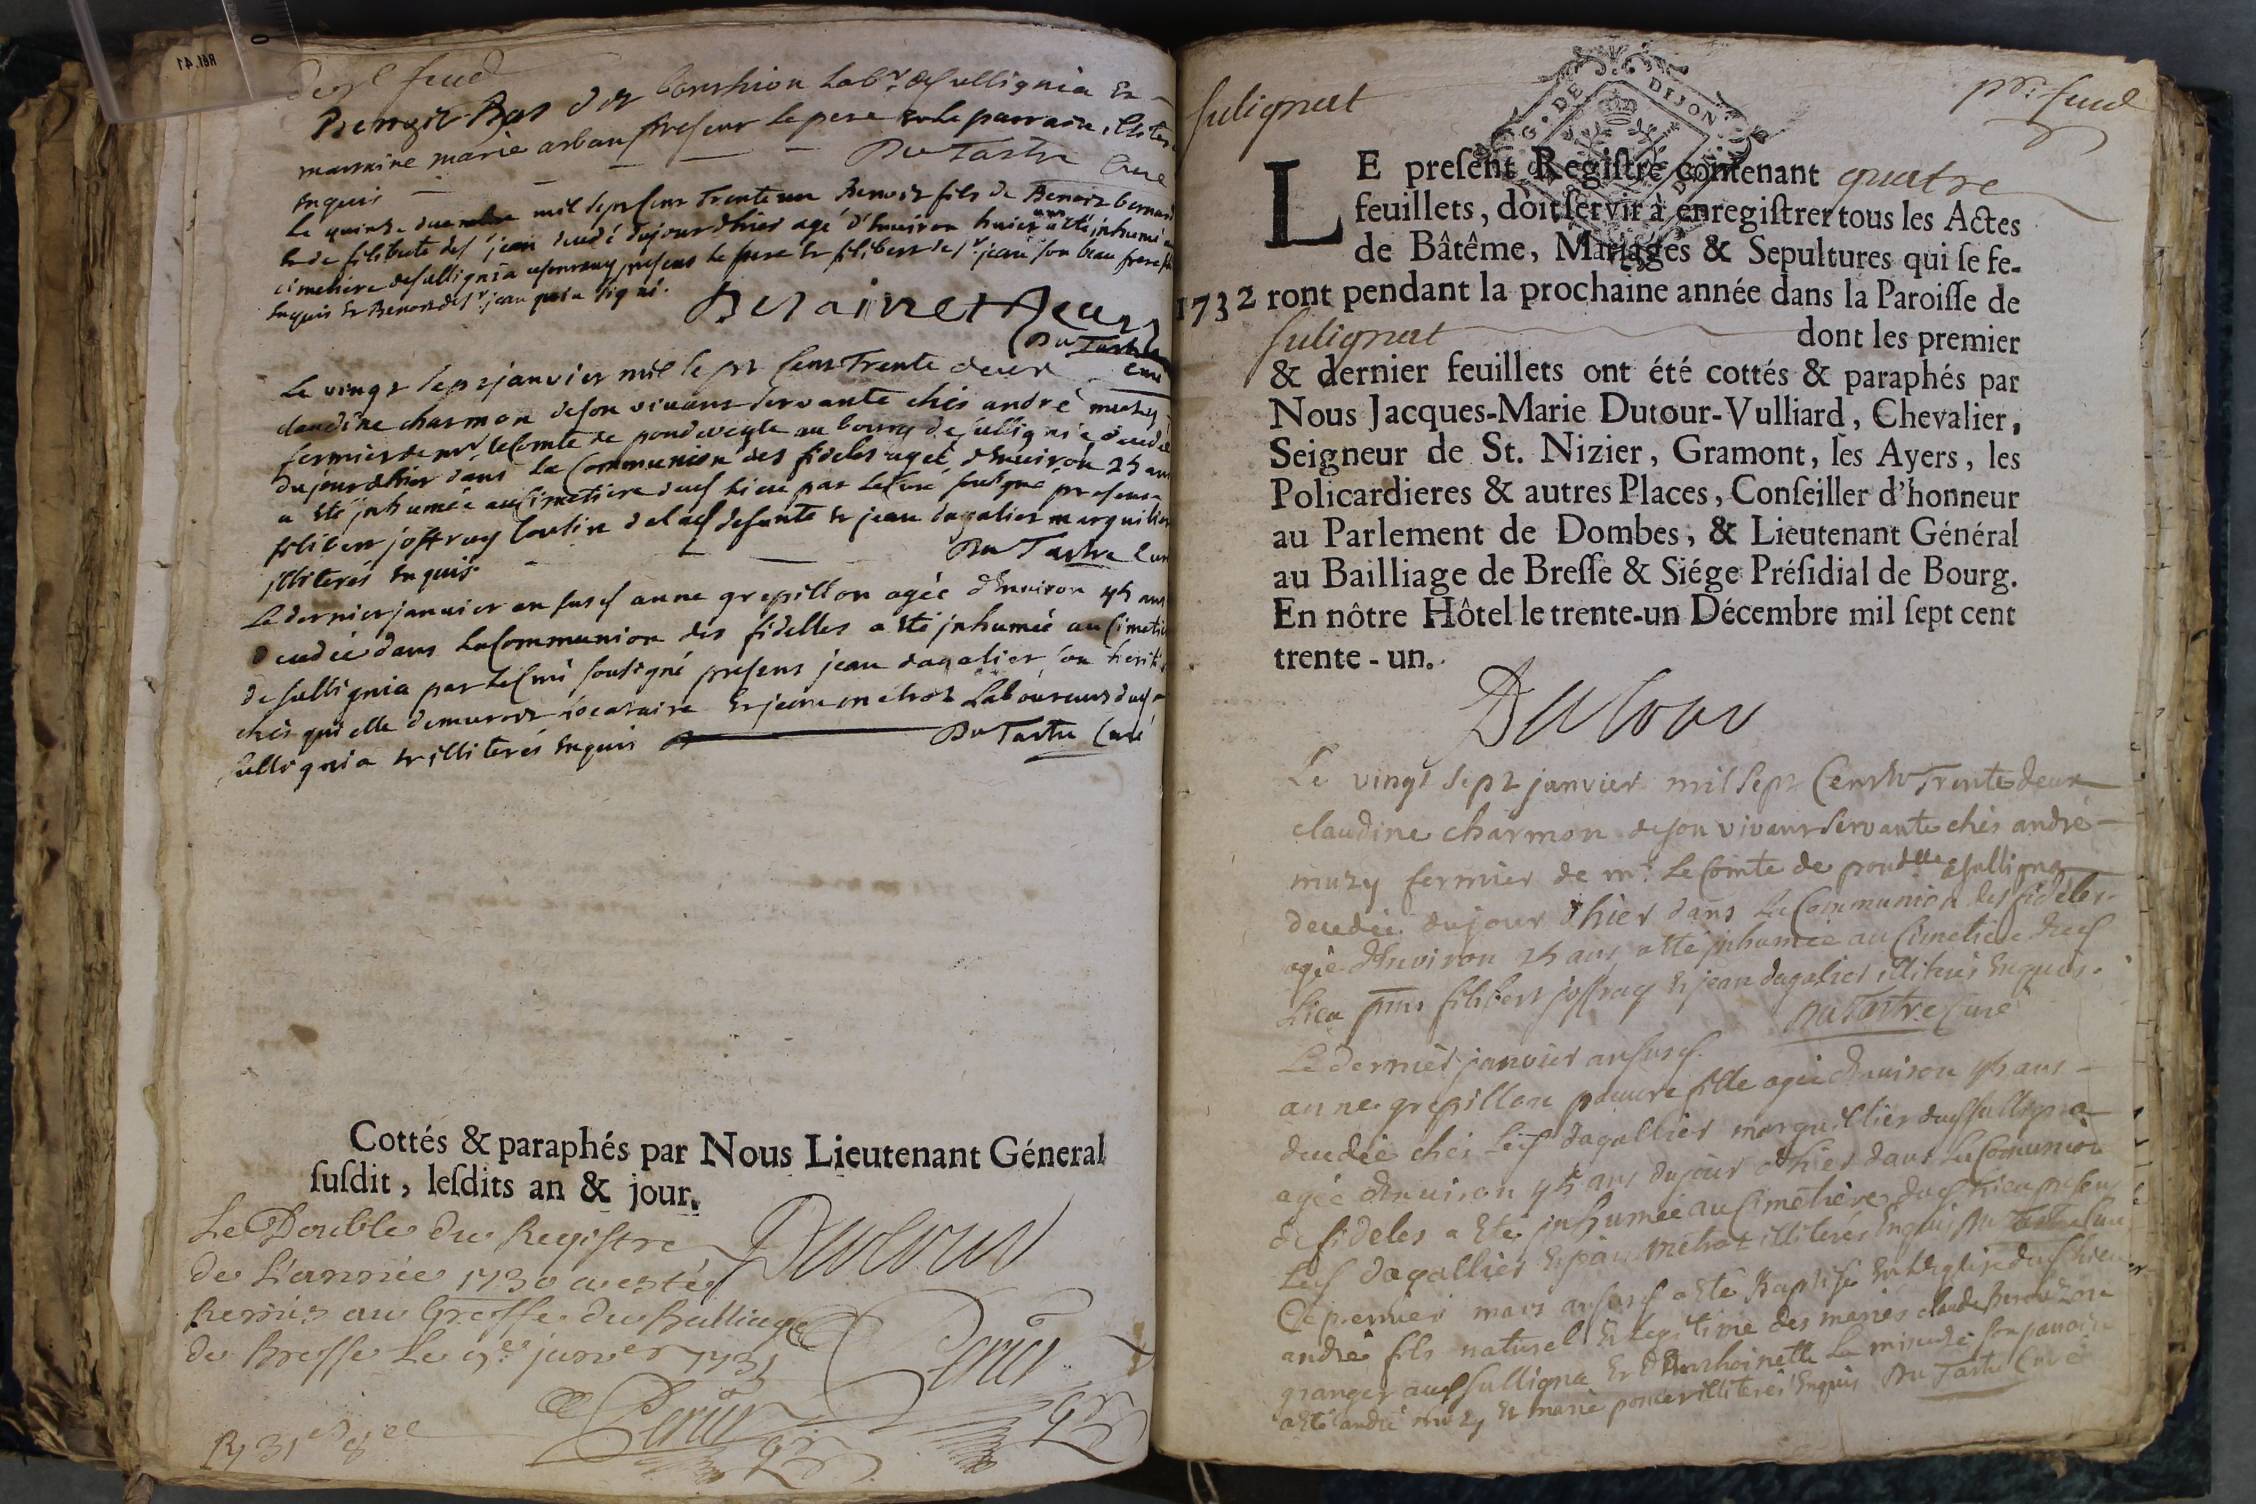 feuil
Benoit Bas dit Corthion Labr. de sullignia Et
marraine marie arban presens le pere et le parrain, illiterés
Enquis Du Tartre Curé
Le quinze mil sept Cent Trente un Benoit fils de Benoit bernard
de filiberte des jean decedé du jour d'hier agé d'Environ huict ans a été inhumé au
cimetiere de sullignia presens le pere Et filibert des jean son beau frere
Enquis Et Benoit des jean qui a signé.
Du Tartre
Curé
Le vingt sept janvier mil sept Cent Trente deux
claudine charmon de son vivant servante chés andré muzy
fermier de mr le Comte de pondeveyle au bourg de sullignia decedée
du jour d'hier dans La Communion des fideles agée d'Environ 25 ans
a été inhumée au Cimetiere dud lieu par le Curé sousigné presens
filibert joffray Cousin de lad defunte Et jean dagalier marguilier
illiterés Enquis Du Tartre Curé
Le dernier janvier an susd anne grepillon agée d'Environ 45 ans
decedée dans la Communion des fidelles a été inhumée au Cimetiere
de sullignia par le Curé sousigné presens jean dagalier son
chés qui elle demuroit locataire Et jean métrat Laboureur dud
sullignia Et illiterés Enquis Du Tartre Curé
Cottés & paraphés par Nous Lieutenant Géneral
susdit, lesdits an & jour.
Le Double du Registre
de L'année 1730 a esté
Remis au Greffe du Balliage
de Bresse Le janver 1731
Perier
Perier
sulignat
pr. feuil
G. DE DIJON
LE present Registre contenant quatre
feuillets, doit servir à enregistrer tous les Actes
de Bâtême, Mariages & Sepultures qui se fe-
1732 ront pendant la prochaine année dans la Paroisse de
sulignat dont les premier
& dernier feuillets ont été cottés & paraphés par
Nous Jacques-Marie Dutour-Vulliard, Chevalier,
Seigneur de St. Nizier, Gramont, les Ayers, les
Policardieres & autres Places, Conseiller d'honneur
au Parlement de Dombes, & Lieutenant Général
au Bailliage de Bresse & Siége Présidial de Bourg.
En nôtre Hôtel le trente-un Décembre mil sept cent
trente-un.
Dutour
Le vingt sept janvier mil sept Cent Trente deux
claudine charmon de son vivant servante chés andré
muzy fermier de mr. Le Comte de pondlle a sulligna
decedée du jour d'hier dans La Communion des fideles
agée d'Environ 25 ans a été inhumée au Cimetiere dud
Lieu pnts filibert joffray Et jean dagalier illiterés Enquis.
Du Tartre Curé
Le dernier janvier an susd.
anne grepillon pauvre fille agée d'Environ 45 ans
decedée chés led dagallier marguillier dud sulligna
agée d'Environ 45 ans du jour d'hier dans La Comunion
de fideles a été inhumée au Cimetiere dud lieu presens
Led dagallier Et jean métrat illiterés Enquis Du Tartre Curé
Le premier mars an susd a été Baptisé En L'église dud lieu
andré fils naturel Et legitime des mariés claude
granger aud sulligna Et d'Enthoinette La son parrain
a été andré muzy Et marie poncet illiterés Enquis Du Tartre Curé